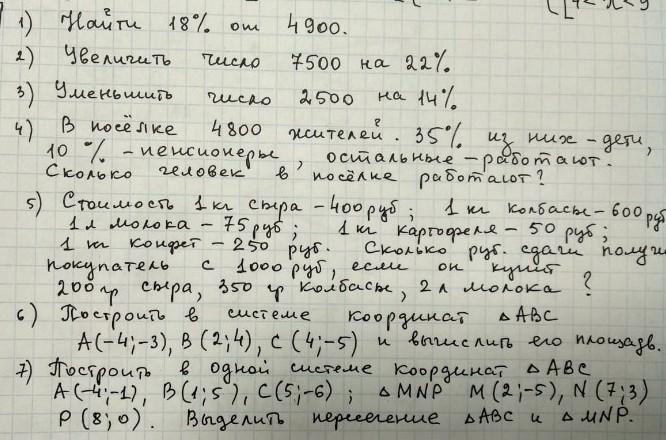 [4 < x < 9
1) Найти 18% от 4900.
2) Увеличить число 7500 на 22%
3) Уменьшить число 2500 на 14%
4) В посёлке 4800 жителей. 35% из них – дети,
10% – пенсионеры, остальные – работают.
Сколько человек в посёлке работают?
5) Стоимость 1 кг сыра – 400 руб; 1 кг колбасы – 600 руб
1 л молока – 75 руб; 1 кг картофеля – 50 руб;
1 кг конфет – 250 руб. Сколько руб. сдачи получи
покупатель с 1000 руб, если он купит
200 гр сыра, 350 гр колбасы, 2 л молока?
6) Построить в системе координат △ABC
A(-4;-3), B(2;4), C(4;-5) и вычислить его площадь.
7) Построить в одной системе координат △ABC
A(-4;-1), B(1;5), C(5;-6); △MNP M(2;-5), N(7;3)
P(8;0). Выделить пересечение △ABC и △MNP.